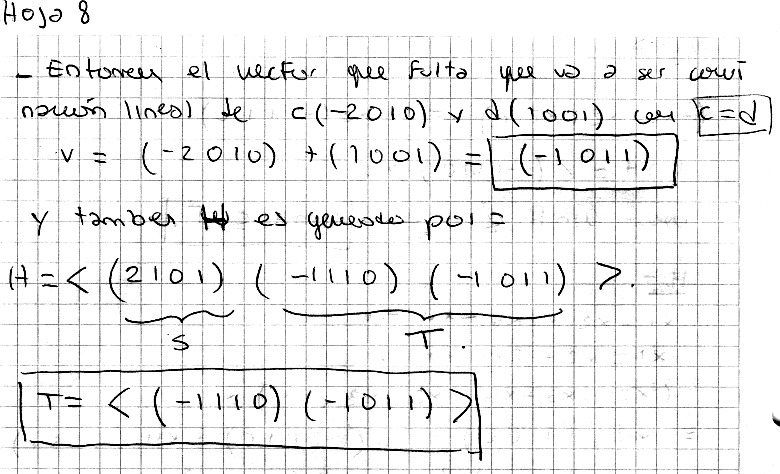 Hoja 8
- Entonces el vector que falta que va a ser combi
nación lineal de c(-2010) y d(1001) con c=d
v = (-2010) + (1001) = (-1 011)
y tambien H es generado por =
H = < (2101) (-1110) (-1 011) >.
S T.
T = < (-1110) (-1011) >